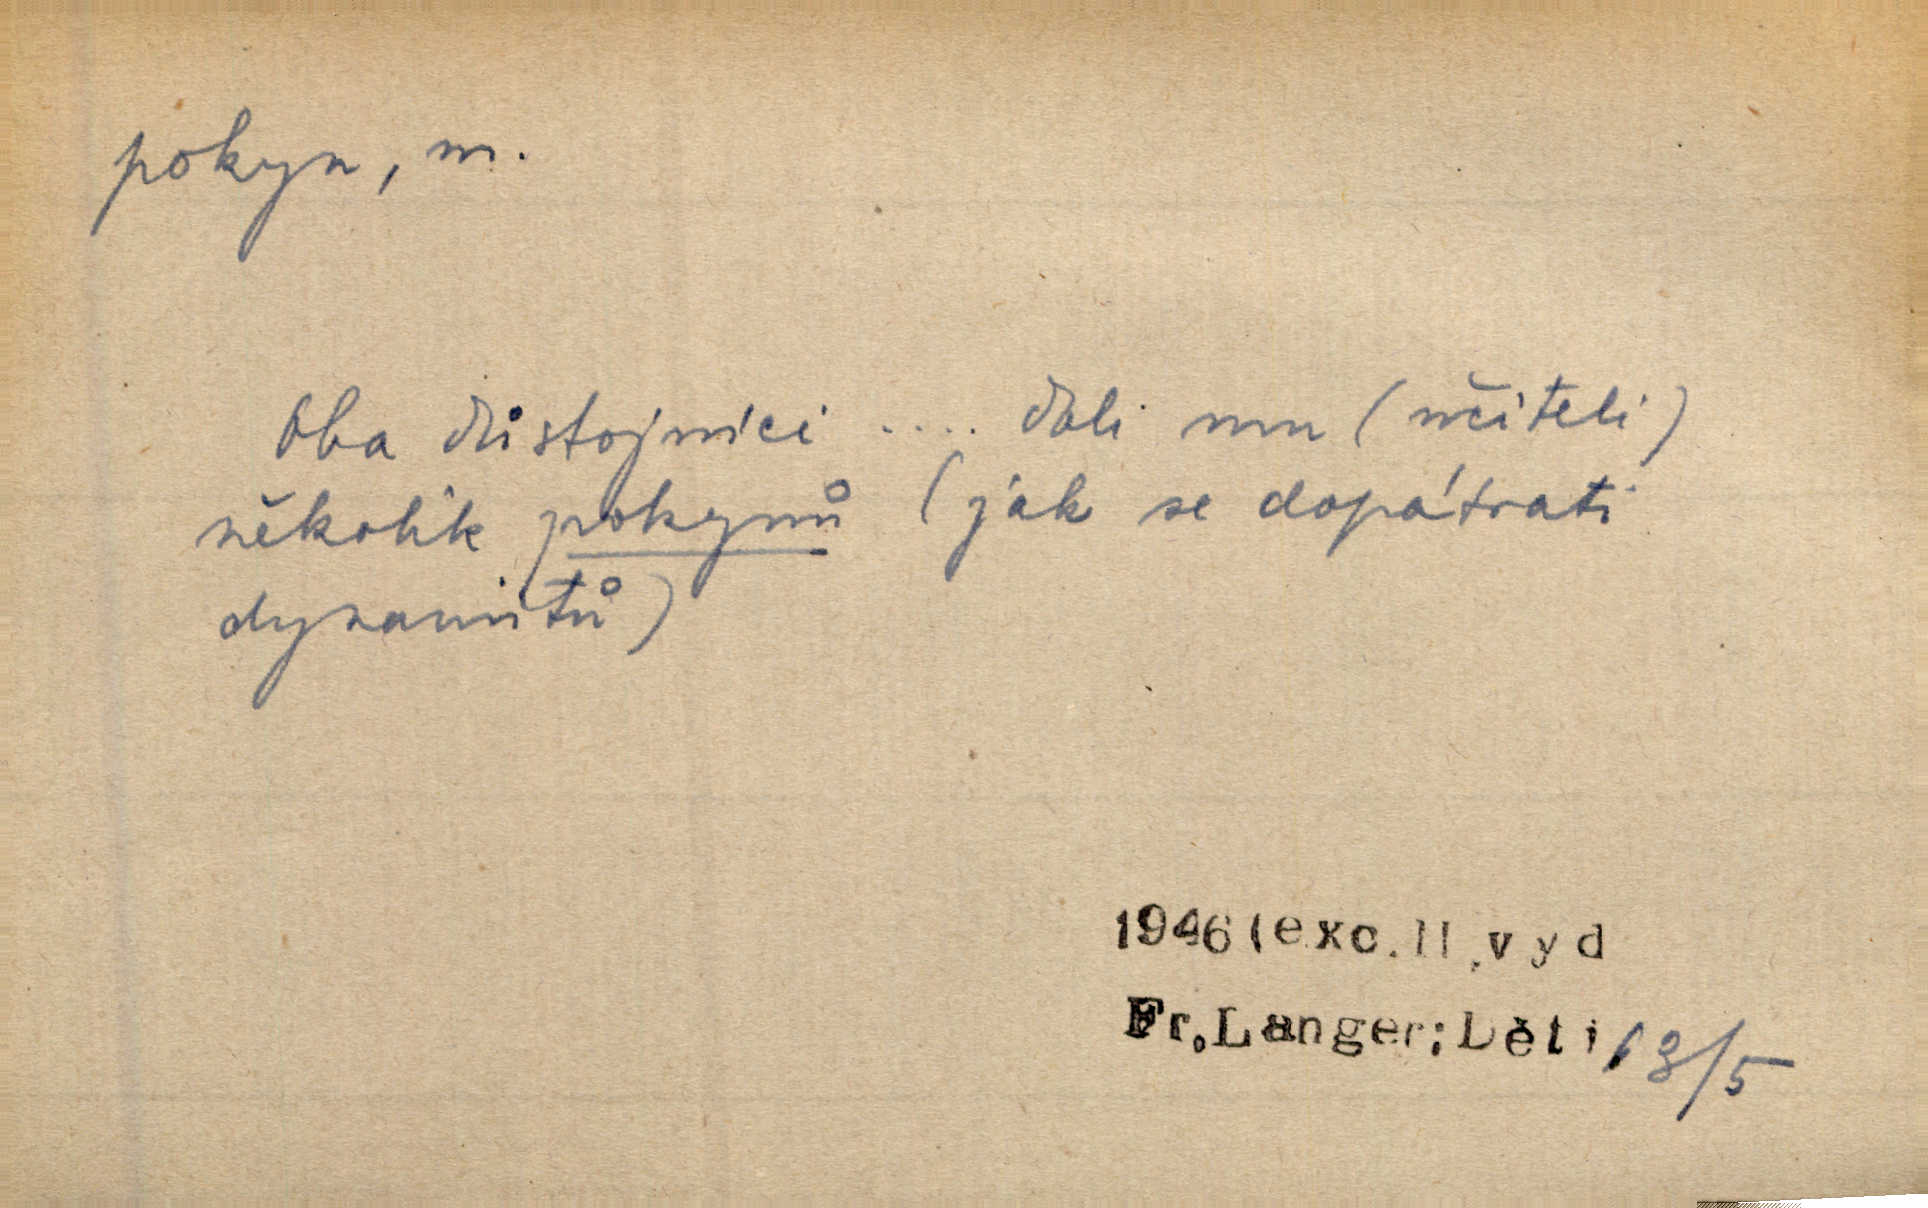 pokyn, m.
Oba důstojníci .... dali mu (učiteli)
několik pokynů (jak se dopátrati
dynamitů)
1946 (exc. II. vyd
Fr. Langer: Děti, 18/5